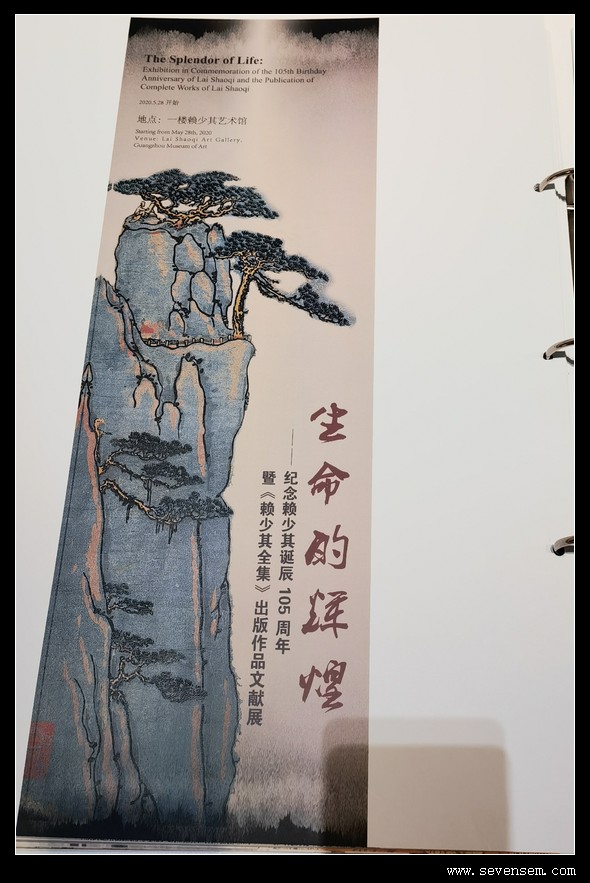 The Splendor of Life:
Exhibition in Commemoration of the 105th Birthday
Anniversary of Lai Shaoqi and the Publication of
Complete Works of Lai Shaoqi
2020.5.28 开始
地点：一楼赖少其艺术馆
Starting from May 28th, 2020
Venue: Lai Shaoqi Art Gallery,
Guangzhou Museum of Art
生命的辉煌
——纪念赖少其诞辰 105 周年
暨《赖少其全集》出版作品文献展
www.sevensem.com